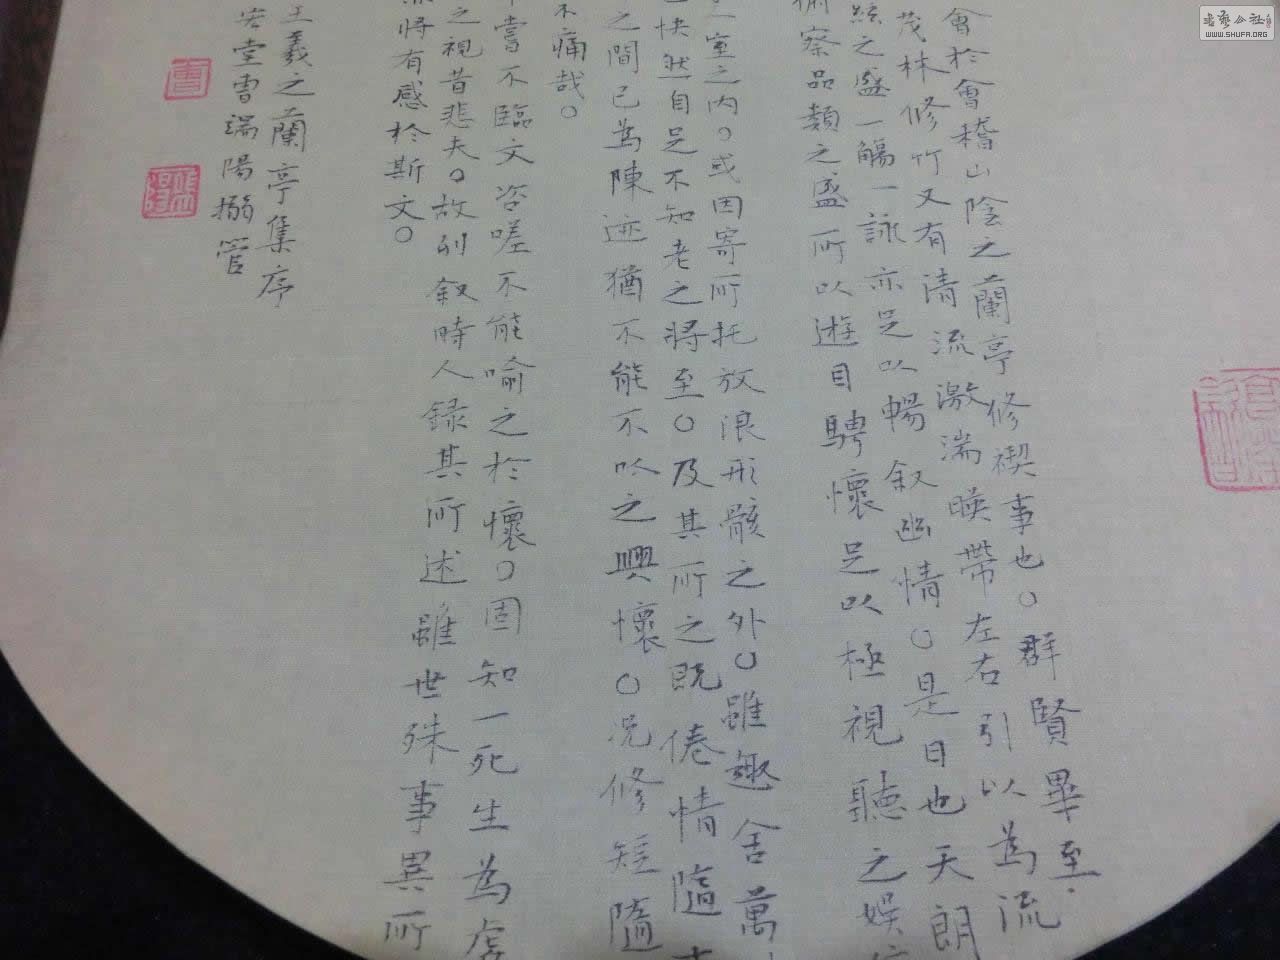 會於會稽山陰之蘭亭修禊事也○群賢畢至
茂林修竹又有清流激湍暎帶左右引以為流
之盛一觴一詠亦足以暢叙幽情○是日也天朗
察品類之盛所以遊目騁懷足以極視聽之娛
室之內○或因寄所托放浪形骸之外○雖趣舍萬
快然自足不知老之將至○及其所之既倦情隨
之間已為陳迹猶不能不以之興懷○況修短隨
不痛哉○
嘗不臨文咨嗟不能喻之於懷○固知一死生為虛
之視昔悲夫○故列叙時人錄其所述雖世殊事異所
將有感於斯文○
王羲之蘭亭集序
堂曹端陽搦管
曹
書藝公社
WWW.SHUFA.ORG